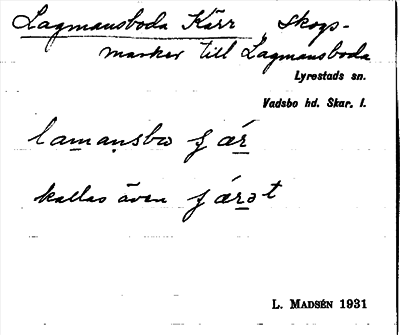 Lagmansboda Kärr, Skogs-
marker till Lagmansboda
Lyrestads sn.
Vadsbo hd. Skar. l.
lamansbω ʃ ær
kallas även ʃ ærət
L. MADSÉN 1931